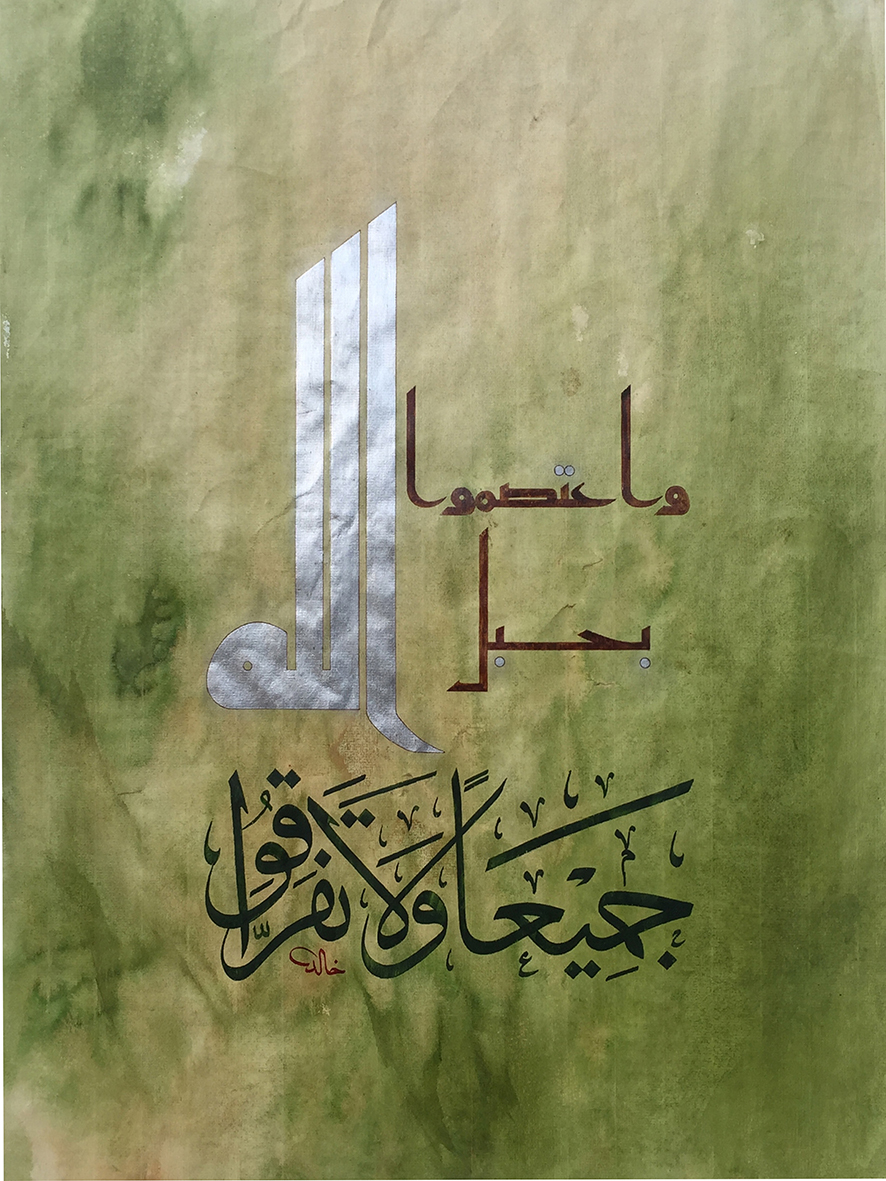 واعتصموا
بحبل
الله
جَمِيْعَاً وَلَا تَفَرَّقُوا
خالد